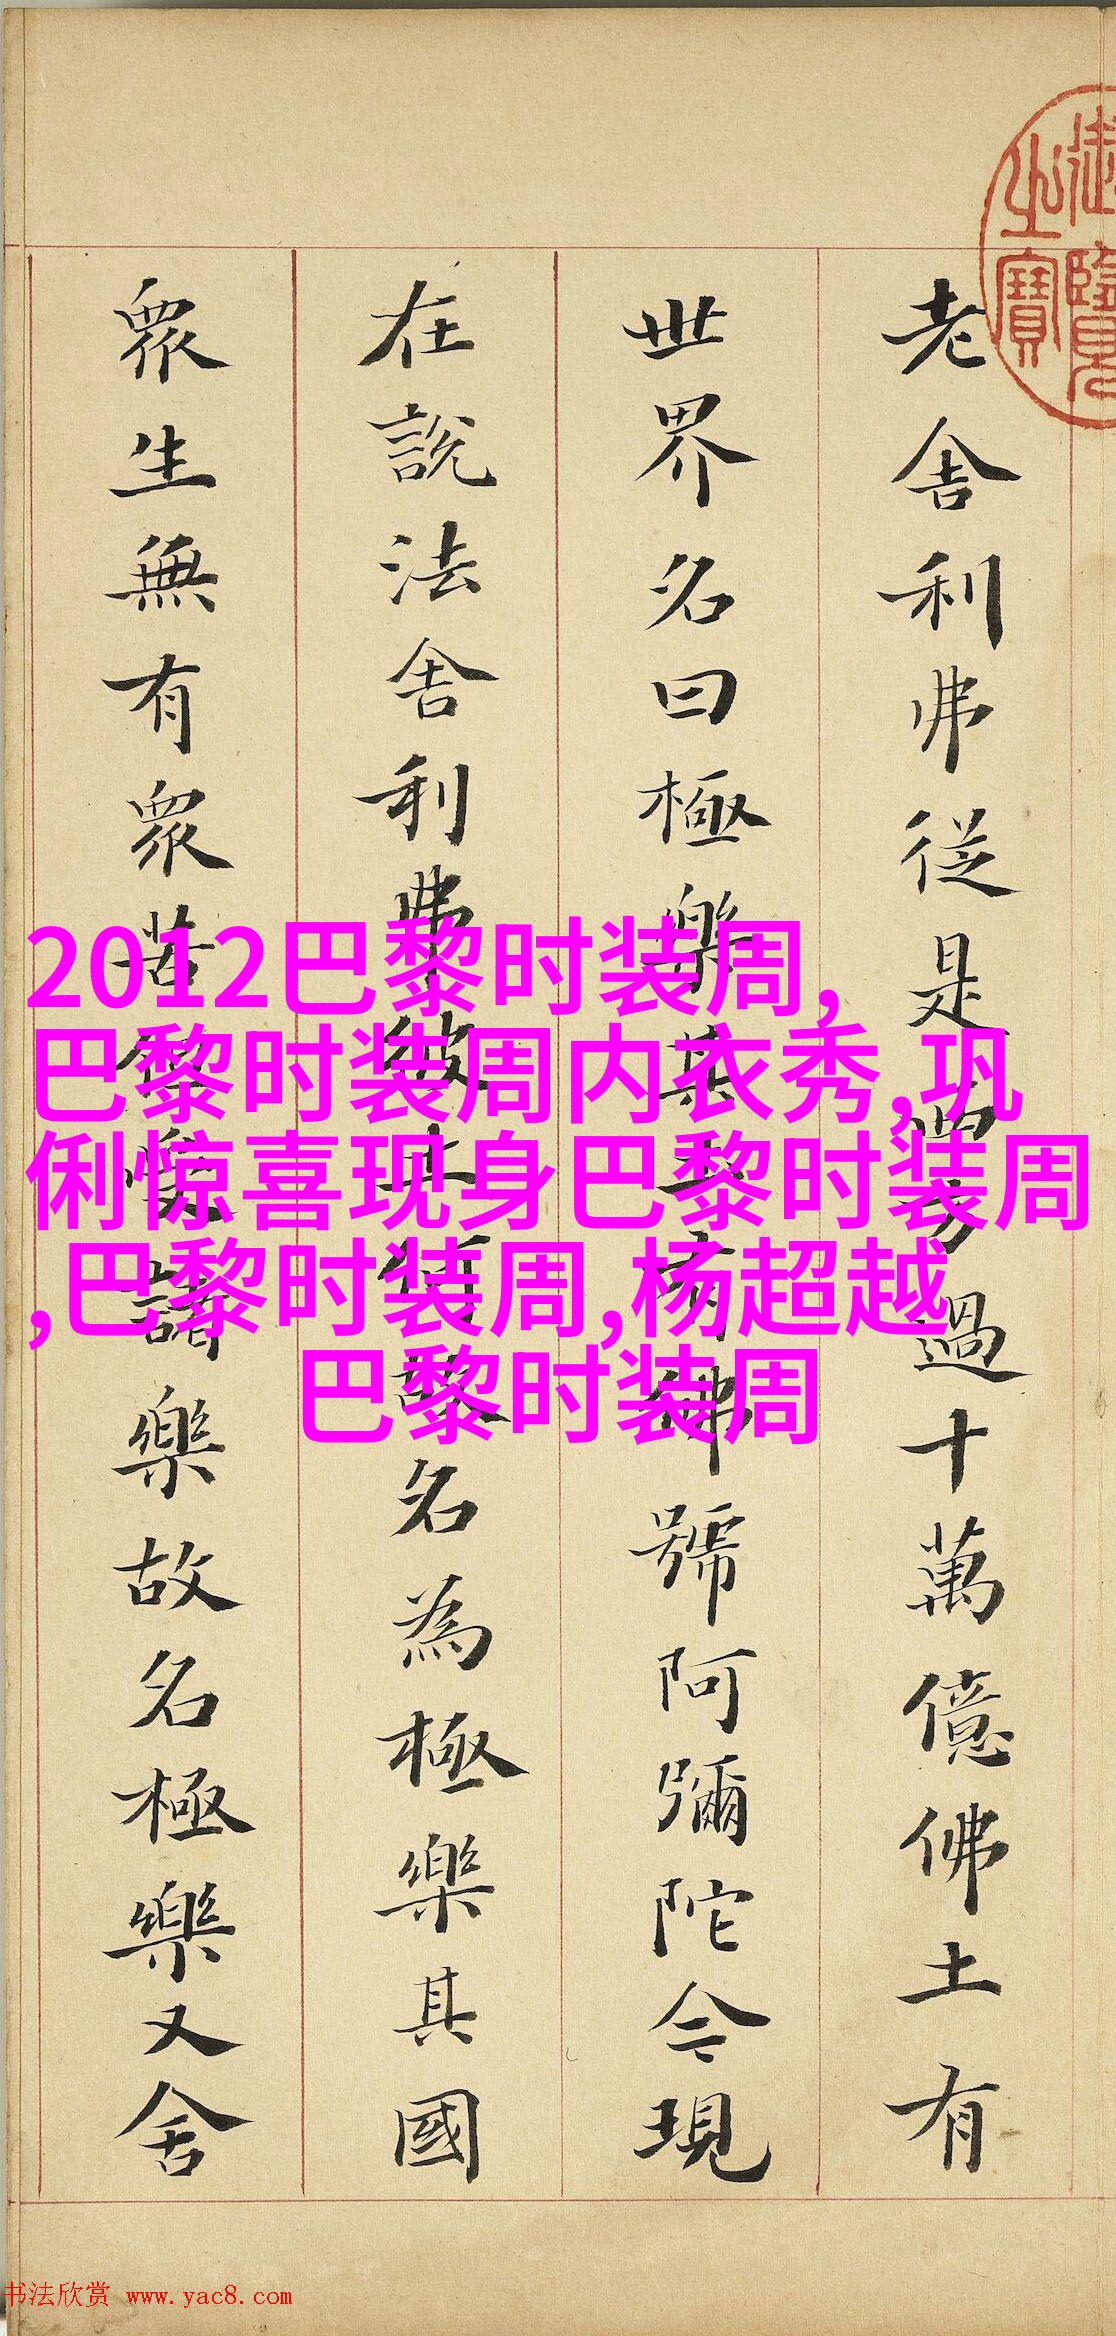 御覽
之寶
老舍利弗從是西方過十萬億佛土有
世界名曰極樂其土有佛號阿彌陀今現
在說法舍利弗彼土何故名為極樂其國
眾生無有眾苦但受諸樂故名極樂又舍
2012巴黎时装周,
巴黎时装周内衣秀,巩
俐惊喜现身巴黎时装周
,巴黎时装周,杨超越
巴黎时装周
书法欣赏 www.yac8.com